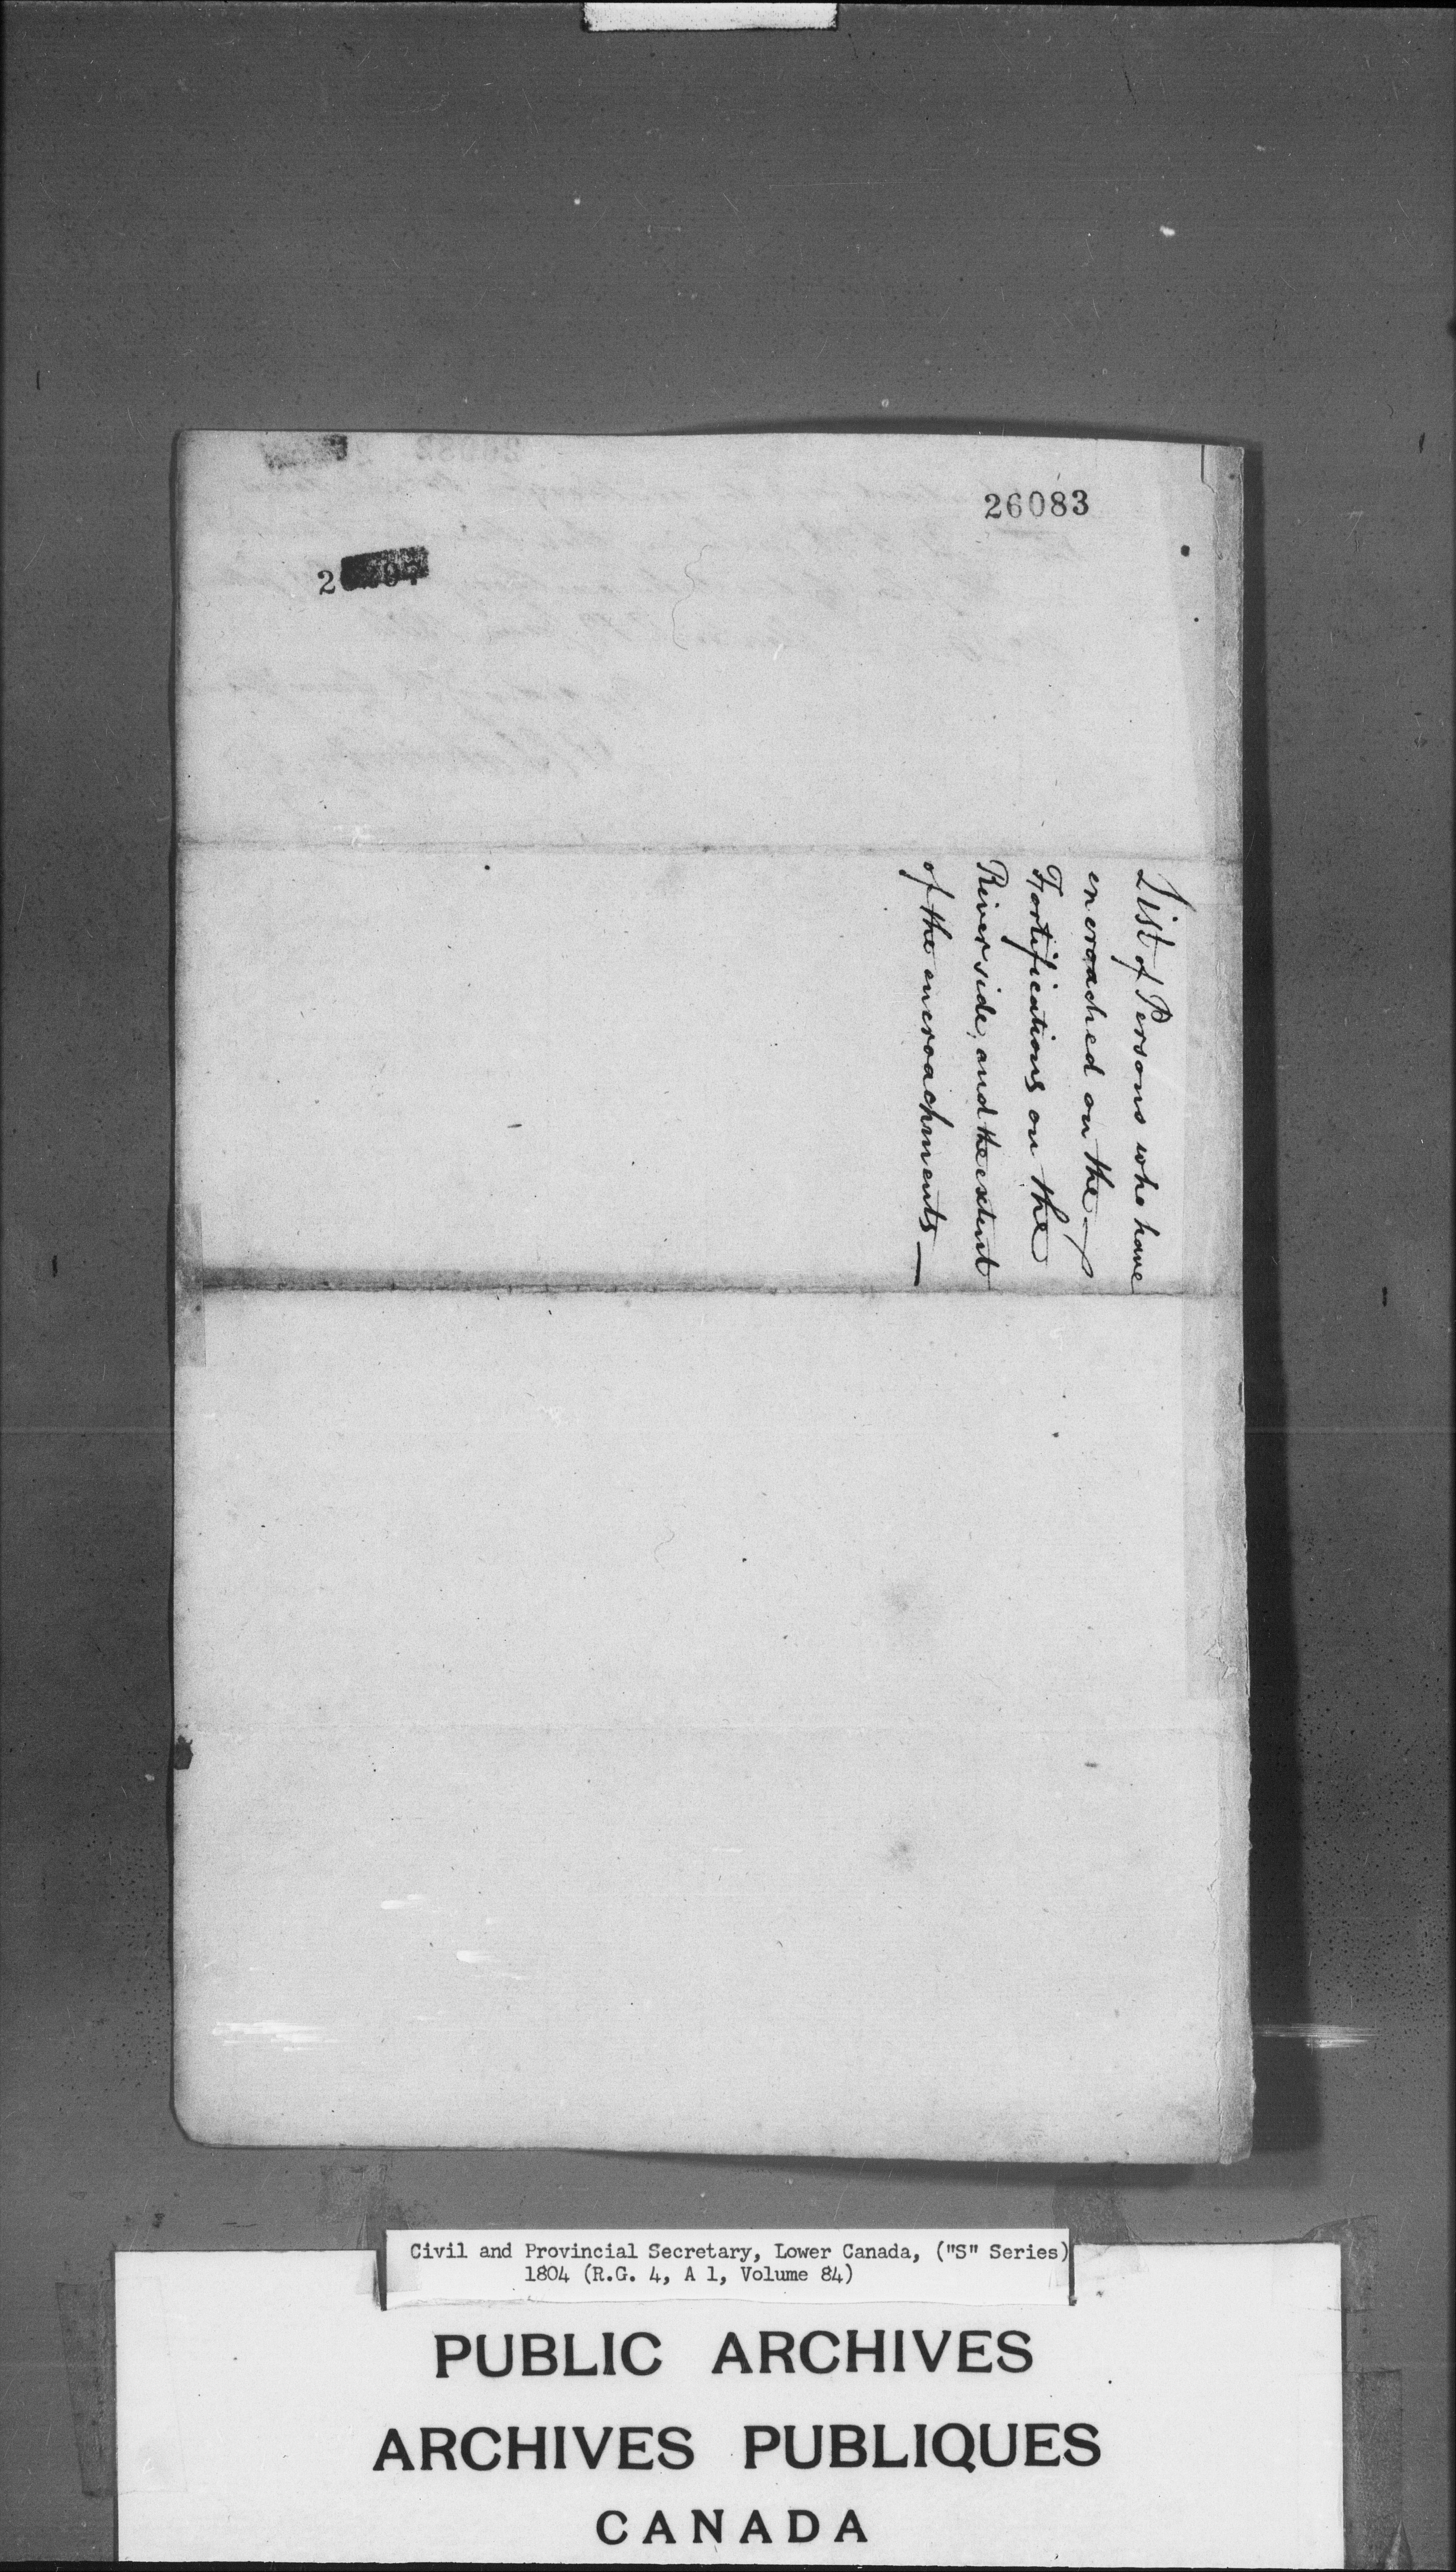 26083
List of Persons who have
encroached on the
Fortifications on the
River side, and the extent
of the encroachments —
Civil and Provincial Secretary, Lower Canada, ("S" Series)
1804 (R.G. 4, A 1, Volume 84)
PUBLIC ARCHIVES
ARCHIVES PUBLIQUES
CANADA